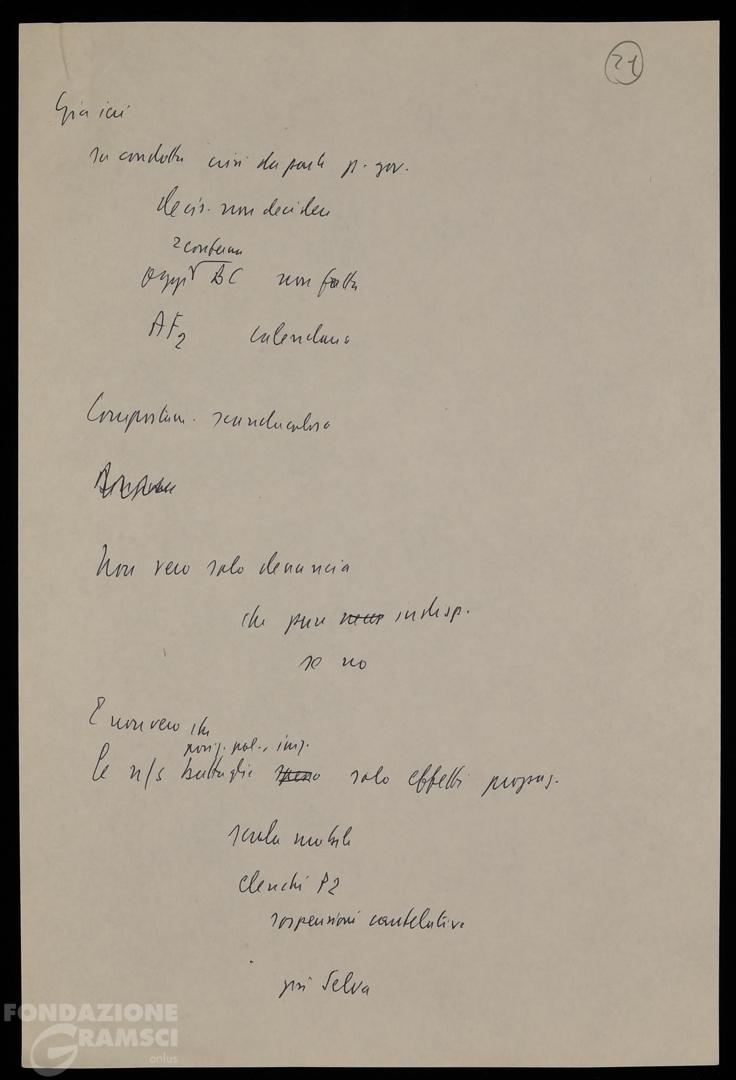 21
Già ieri
su condotta crisi da parte p. gov.
decis. non decidere
2 conferme
oggi √ BC non fatta
AF2 calendario
Comportam. scandaloso
Non vero solo denuncia
che pure indisp.
se no
E non vero che
posiz. pol., iniz.
le n/s battaglie solo effetti propag.
scala mobile
elenchi P2
sospensioni cautelative
poi Selva
FONDAZIONE
GRAMSCI
onlus